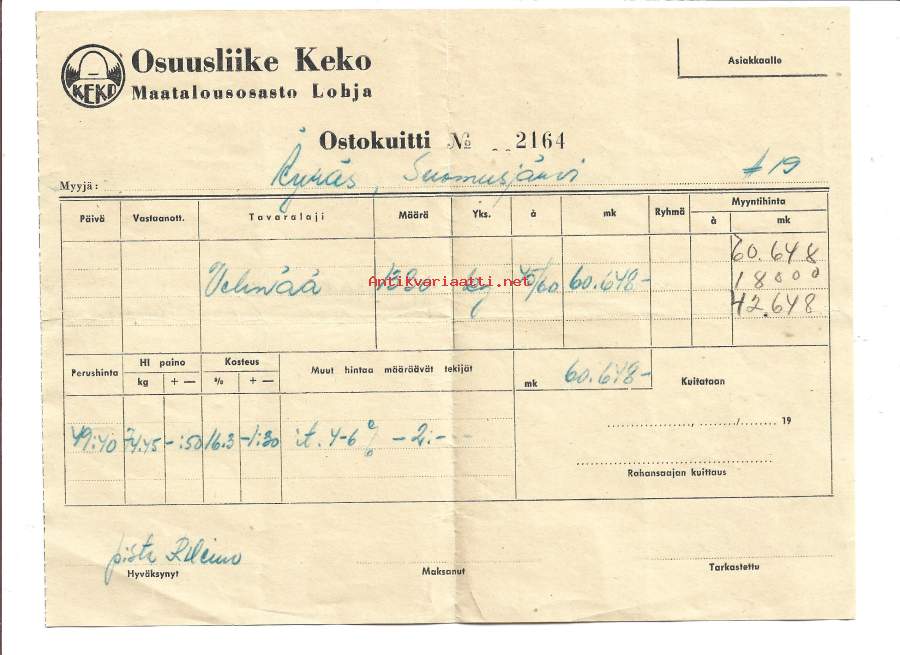 KEKO
Osuusliike Keko
Maatalousosasto Lohja
Asiakkaalle
Ostokuitti № 2164
Myyjä: Äyräs, Suomusjärvi 19
Päivä Vastaanott. Tavaralaji Määrä Yks. à mk Ryhmä Myyntihinta
à mk
60.648
Vehnää 1330 kg 45/60 60.648-
18000
42.648
Antikvariaatti.net
Perushinta Hl paino Kosteus Muut hintaa määräävät tekijät mk 60.648- Kuitataan
kg + — % + —
49:40 74.45 -:50 16.3 -1:30 it. 4-6 % -2:-
19
Rahansaajan kuittaus
Hyväksynyt
Maksanut
Tarkastettu